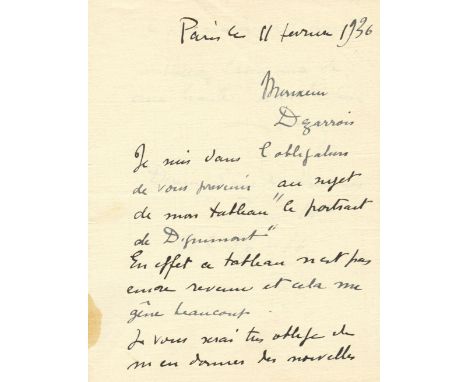 Paris le 11 fevrier 1936
Monsieur
Dezarrois
Je suis dans l'obligation
de vous prevenir au sujet
de mon tableau "le portrait
de Dignimont"
En effet ce tableau n'est pas
encore revenu et cela me
gêne beaucoup.
Je vous serai très obligé de
m'en donner des nouvelles